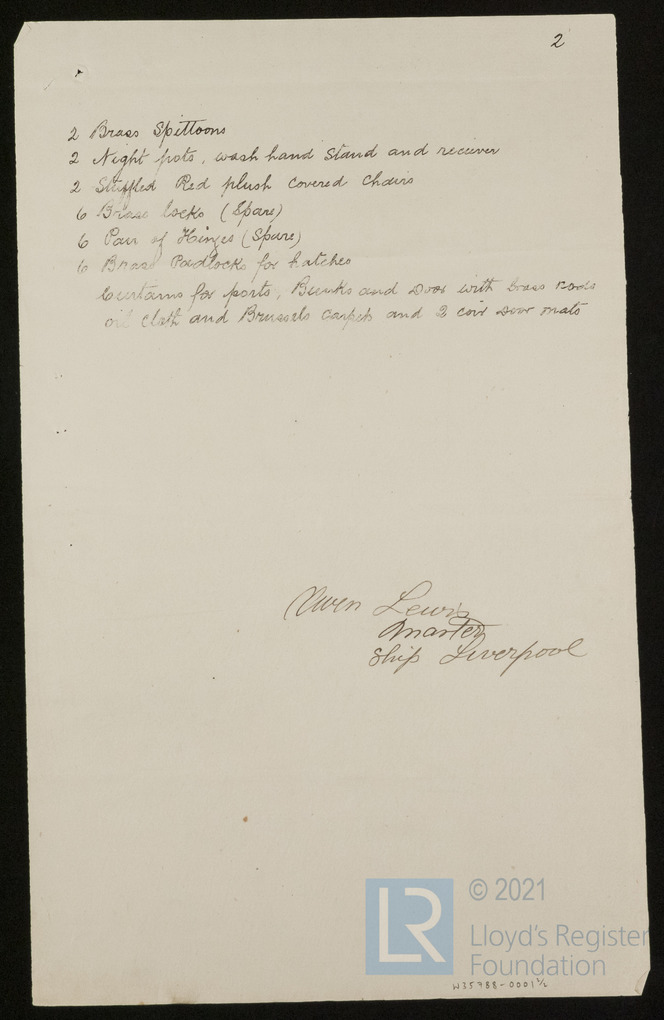 2
2 Brass Spittoons
2 Night pots, wash hand Stand and reciever
2 Stuffled Red plush covered Chairs
6 Brass locks (Spare)
6 Pair of Hinges (Spare)
6 Brass Padlocks for hatches
Curtains for ports, Bunks and Door with brass rods
oil cloth and Brussels carpets and 2 coir Door mats
Owen Lewis
Master
Ship Liverpool
LR
© 2021
Lloyd's Register
Foundation
W35788-0001 2/2